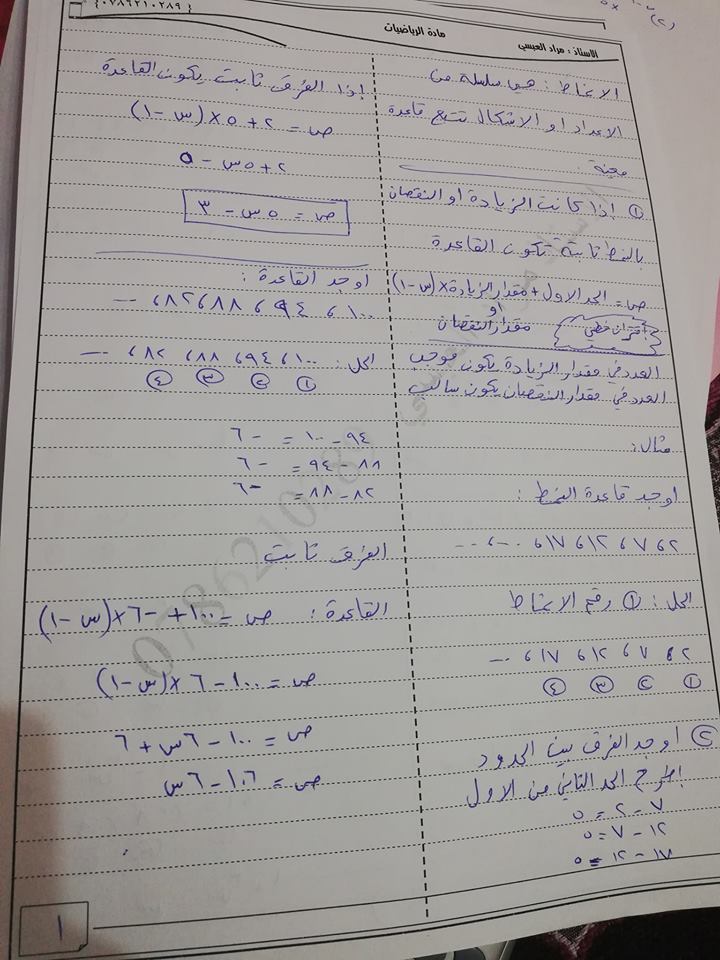 (٢)
{٠٧٨٦٢١٠٢٨٩}
مادة الرياضيات
الاستاذ : مراد العبسي
الانماط : هي سلسلة من
الاعداد او الاشكال تتبع قاعدة
معينة .
① اذا كانت الزيادة او النقصان
بالنمط ثابتة تكون القاعدة
ص = الحد الاول + مقدار الزيادة × (س - ١)
او
مقدار النقصان
اقتران خطي
العدد في مقدار الزيادة يكون موجب
العدد في مقدار النقصان يكون سالب
مثال:
اوجد قاعدة النمط :
٢ ، ٧ ، ١٢ ، ١٧ ، ...
الحل : ① رقم الانماط
٢ ، ٧ ، ١٢ ، ١٧ ، ...
① ② ③ ④
② اوجد الفرق بين الحدود
اطرح الحد الثاني من الاول
٧ - ٢ = ٥
١٢ - ٧ = ٥
١٧ - ١٢ = ٥
إذا الفرق ثابت يكون القاعدة
ص = ٢ + ٥ × (س - ١)
٢ + ٥س - ٥
ص = ٥س - ٣
اوجد القاعدة :
١٠٠ ، ٩٤ ، ٨٨ ، ٨٢ ، ...
الحل : ١٠٠ ، ٩٤ ، ٨٨ ، ٨٢ ، ...
① ② ③ ④
٩٤ - ١٠٠ = -٦
٨٨ - ٩٤ = -٦
٨٢ - ٨٨ = -٦
الفرق ثابت
القاعدة : ص = ١٠٠ + -٦ × (س - ١)
ص = ١٠٠ - ٦ × (س - ١)
ص = ١٠٠ - ٦س + ٦
ص = ١٠٦ - ٦س
0786210289
١